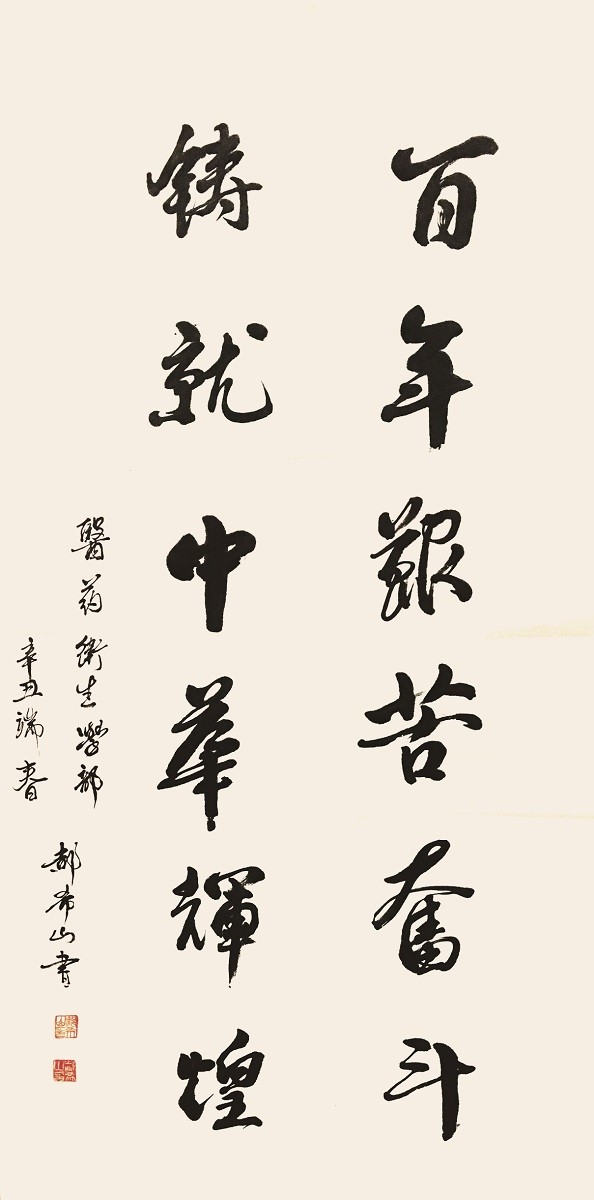 百年艱苦奮斗
鑄就中華輝煌
醫药衛生學部
辛丑端春
郝希山書